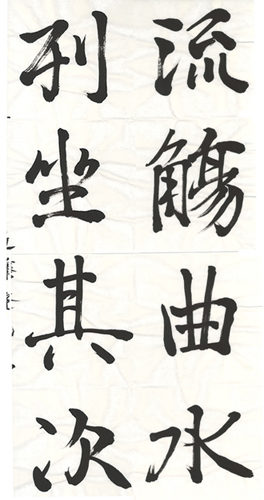 流觴曲水
列坐其次